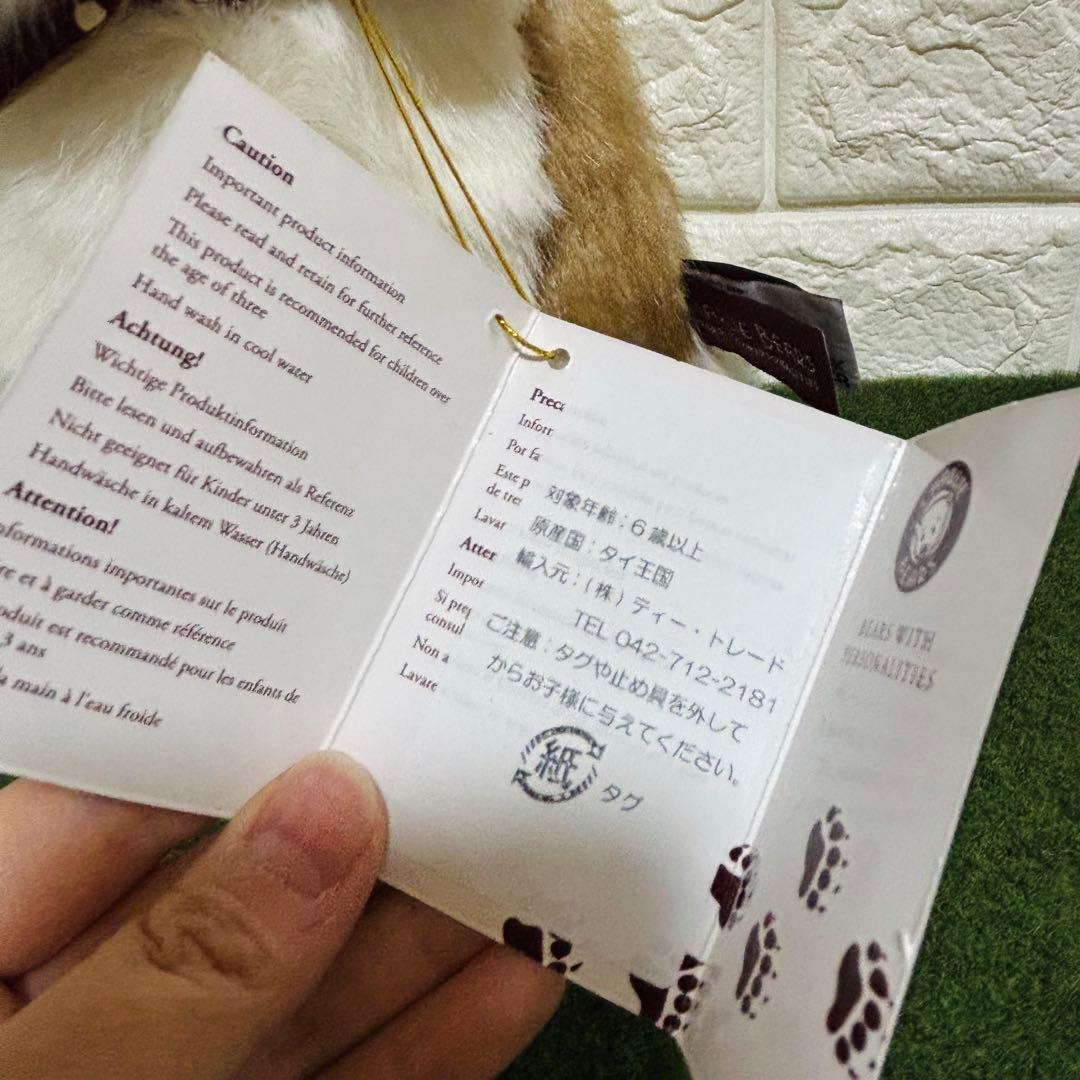 Caution
Important product information
Please read and retain for further reference
This product is recommended for children over
the age of three
Hand wash in cool water
Achtung!
Wichtige Produktinformation
Bitte lesen und aufbewahren als Referenz
Nicht geeignet für Kinder unter 3 Jahren
Handwäsche in kaltem Wasser (Handwäsche)
Attention!
nformations importantes sur le produit
re et à garder comme référence
oduit est recommandé pour les enfants de
3 ans
la main à l'eau froide
Preca
Inforr
Por fa
Este p
de tres
Lavar
Atter
Impor
Si preg
consul
Non a
Lavare
対象年齢：6歳以上
原産国：タイ王国
輸入元：(株)ティー・トレード
TEL 042-712-2181
ご注意：タグや止め具を外して
からお子様に与えてください。
紙
タグ
BEARS WITH
PERSONALITIES
BEARS